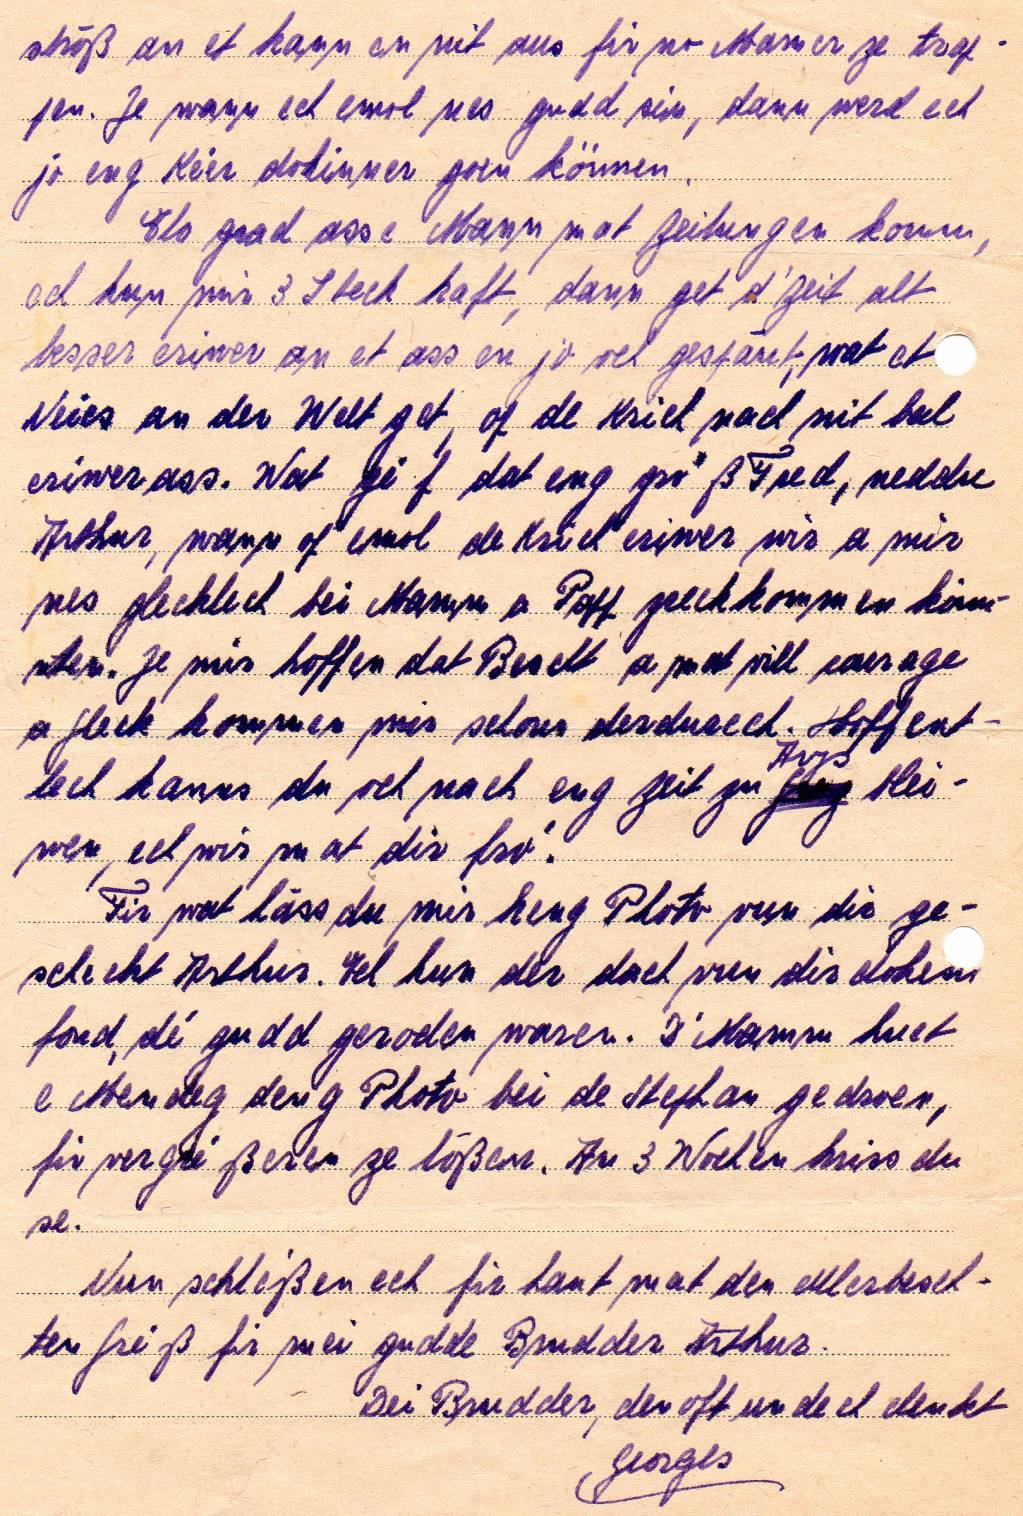 ströß an et kann en nit aus fir no Mamer ze trap-
pen. Je wann ech emol nes gudd sin, dann werd ech
jo eng Kéer dohinner goen können.
Elo grad ass e Mann mat Zeitungen komm,
ech hun mir 3 Steck kaft, dann get d'Zeit alt
besser eriwer an et ass en jo och gespaant, wat et
Neies an der Welt get, of de Krich nach nit bal
eriwer ass. Wat géf dat eng gro'ß Fred, neddu
Arthur, wann of emol de Krich eriwer wir a mir
nes glecklech bei Mamm a Papp zreckkommen könn-
nten. Je mir hoffen dat Bescht a mat vill courage
a Gleck kommen mir schonn derduerch. Hoffent-
lech kanns du och nach eng Zeit zu Arys blei-
wen, ech wir mat dir fro'.
Fir wat läss du mir keng Photo vun dir ge-
schecht Arthur. Ech hun der dach vun dir dohem
fond, dé gudd geroden waren. D'Mamm huet
e Mendeg deng Photo bei de Stephan gedroen,
fir vergréißeren ze lößen. An 3 Wochen kriss du
se.
Nun schléßen ech fir haut mat den Allerbesch-
ten Gréiß fir mei gudde Brudder Arthur.
Dei Brudder, den oft un dech denkt
Georges